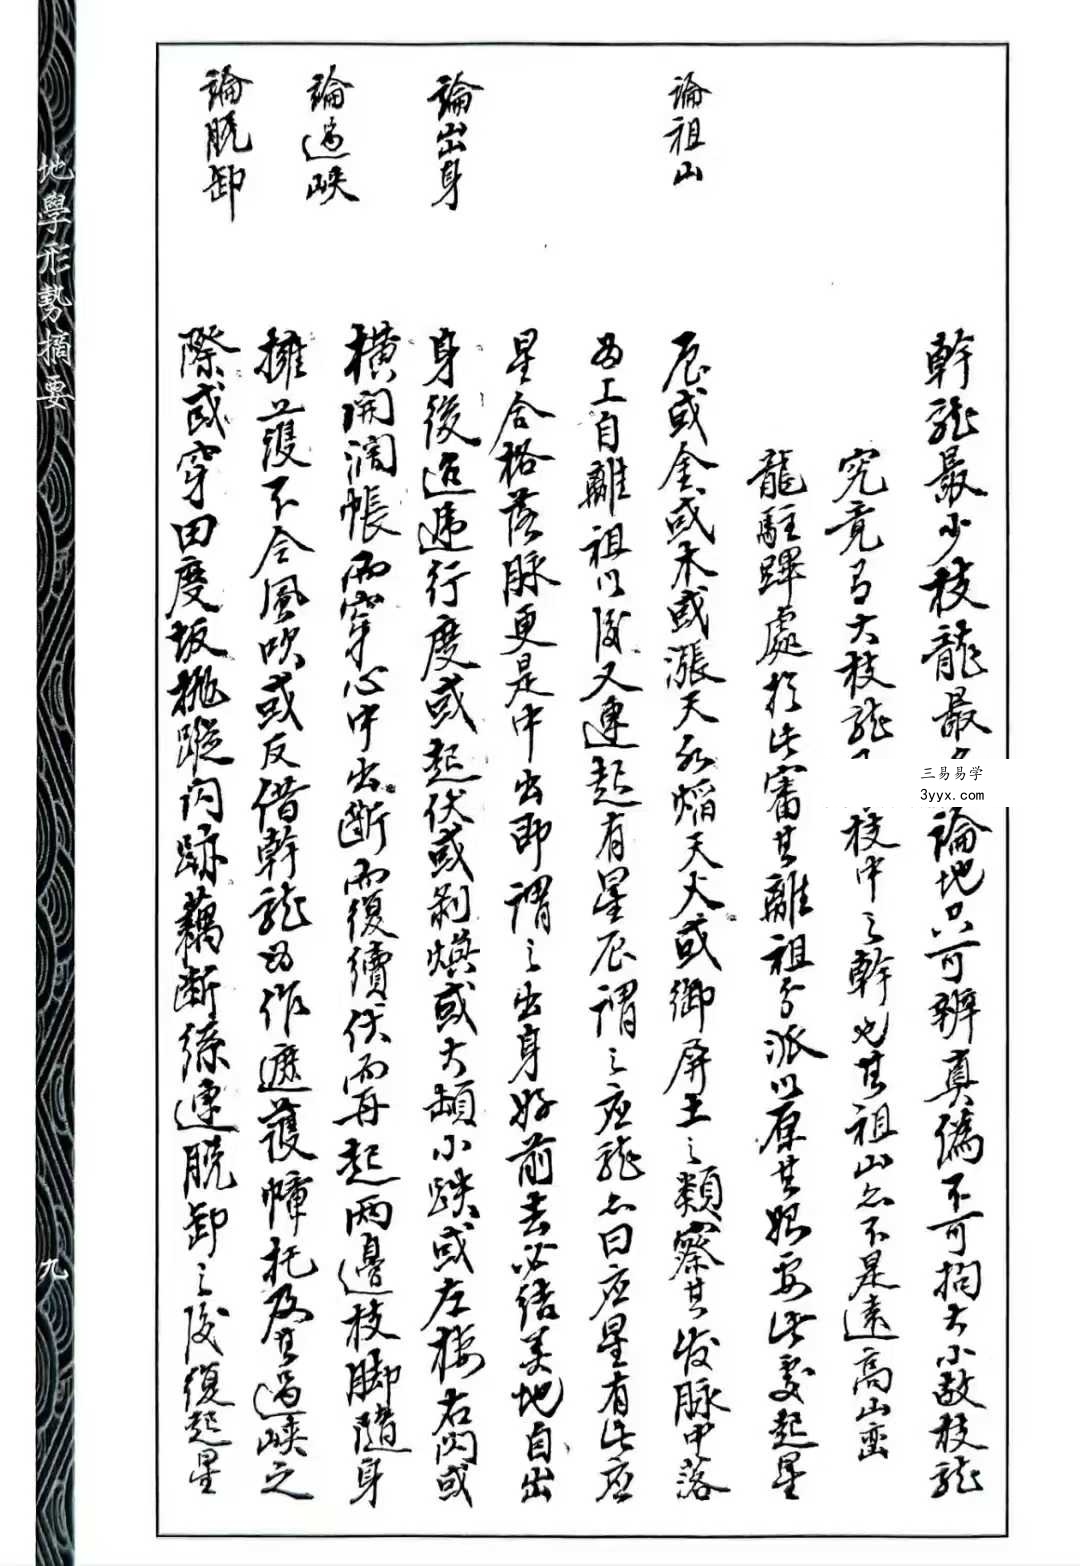 幹龍最少枝龍最論地只可辨真僞不可拘大小故枝龍
究竟有大枝龍枝中之幹也其祖山亦不是遠高山巒
龍駐蹕處於此審其離祖分派以原其始要此處起星
論祖山
辰或金或木或漲天水焰天火或御屏土之類察其發脉中落
如工自離祖以後又連起有星辰謂之应龍亦曰应星有此应
星合格落脉更是中出即謂之出身好前去必結美地自出
論出身
身後迢遞行度或起伏或剝換或大頓小跌或左棲右閃或
橫開濶帳而穿心中出断而復續伏而再起两邊枝脚隨身
論過峽
擁護不令風吹或反借幹龍為作遮護幛托及其過峽之
論脱卸
際或穿田度坂抛蹤閃跡藕断絲連脱卸之後復起星
地學形勢摘要
九
三易易学
3yyx.com